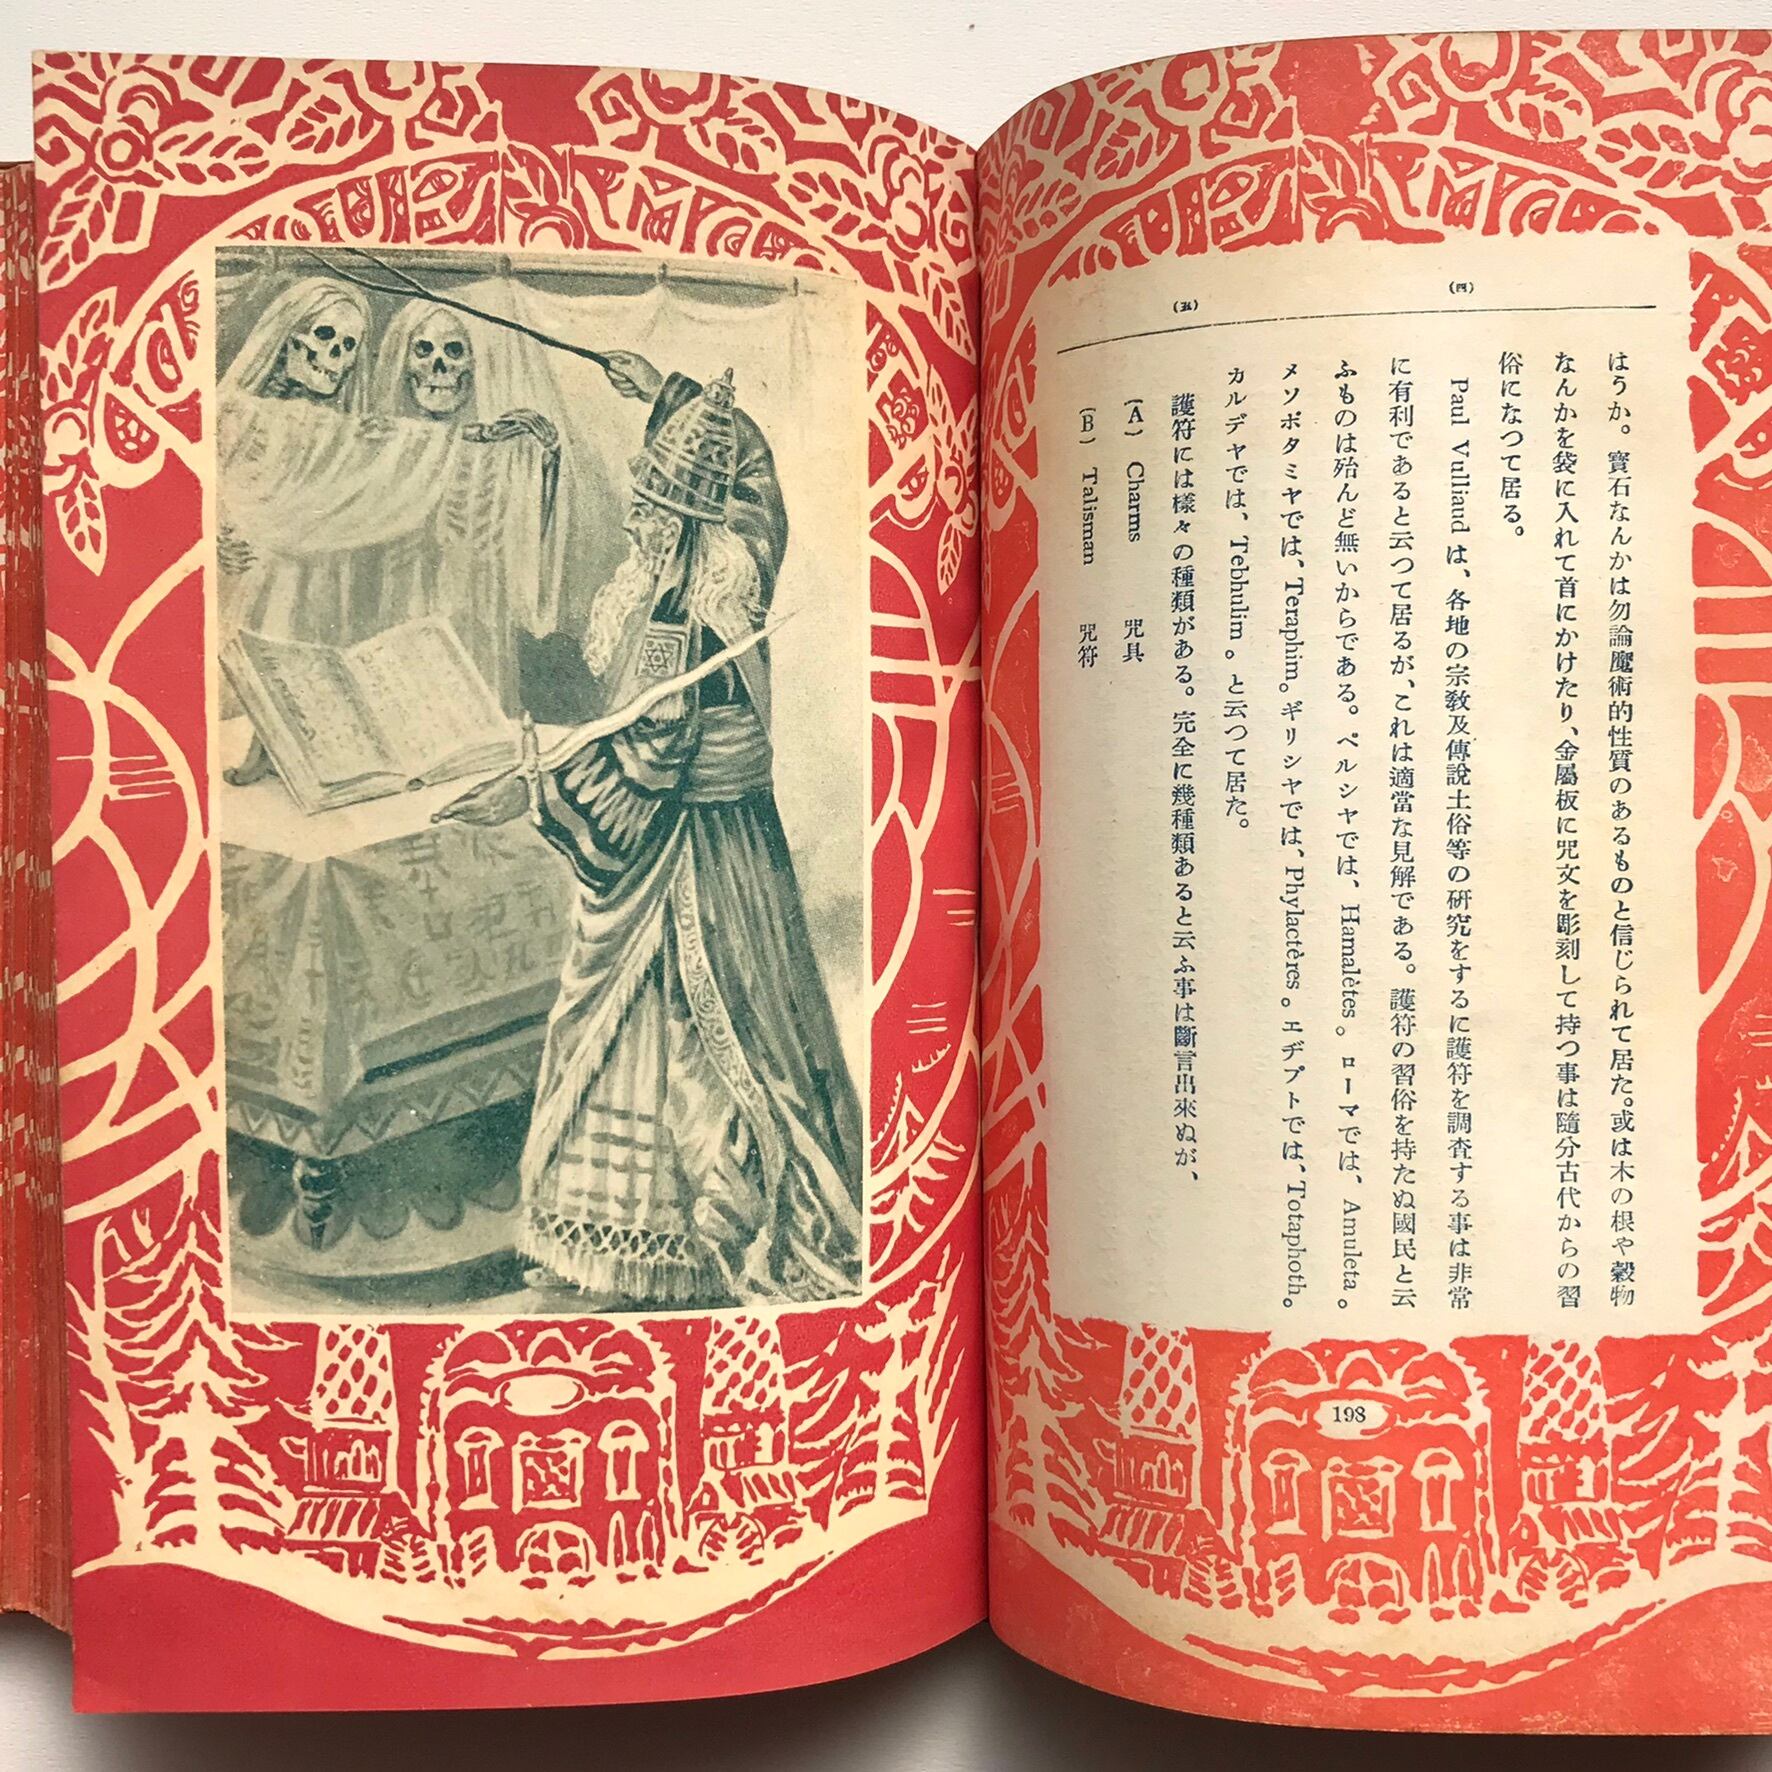 (四)
(五)
はうか。寶石なんかは勿論魔術的性質のあるものと信じられて居た。或は木の根や穀物
なんかを袋に入れて首にかけたり、金屬板に咒文を彫刻して持つ事は隨分古代からの習
俗になつて居る。
Paul Vulliaud は、各地の宗教及傳說土俗等の研究をするに護符を調査する事は非常
に有利であると云つて居るが、これは適當な見解である。護符の習俗を持たぬ國民と云
ふものは殆んど無いからである。ペルシヤでは、Hamalètes。ローマでは、Amuleta。
メソポタミヤでは、Teraphim。ギリシヤでは、Phylactères。エヂプトでは、Totaphoth。
カルデヤでは、Tebhulim。と云つて居た。
護符には樣々の種類がある。完全に幾種類あると云ふ事は斷言出來ぬが、
(A) Charms 咒具
(B) Talisman 咒符
198